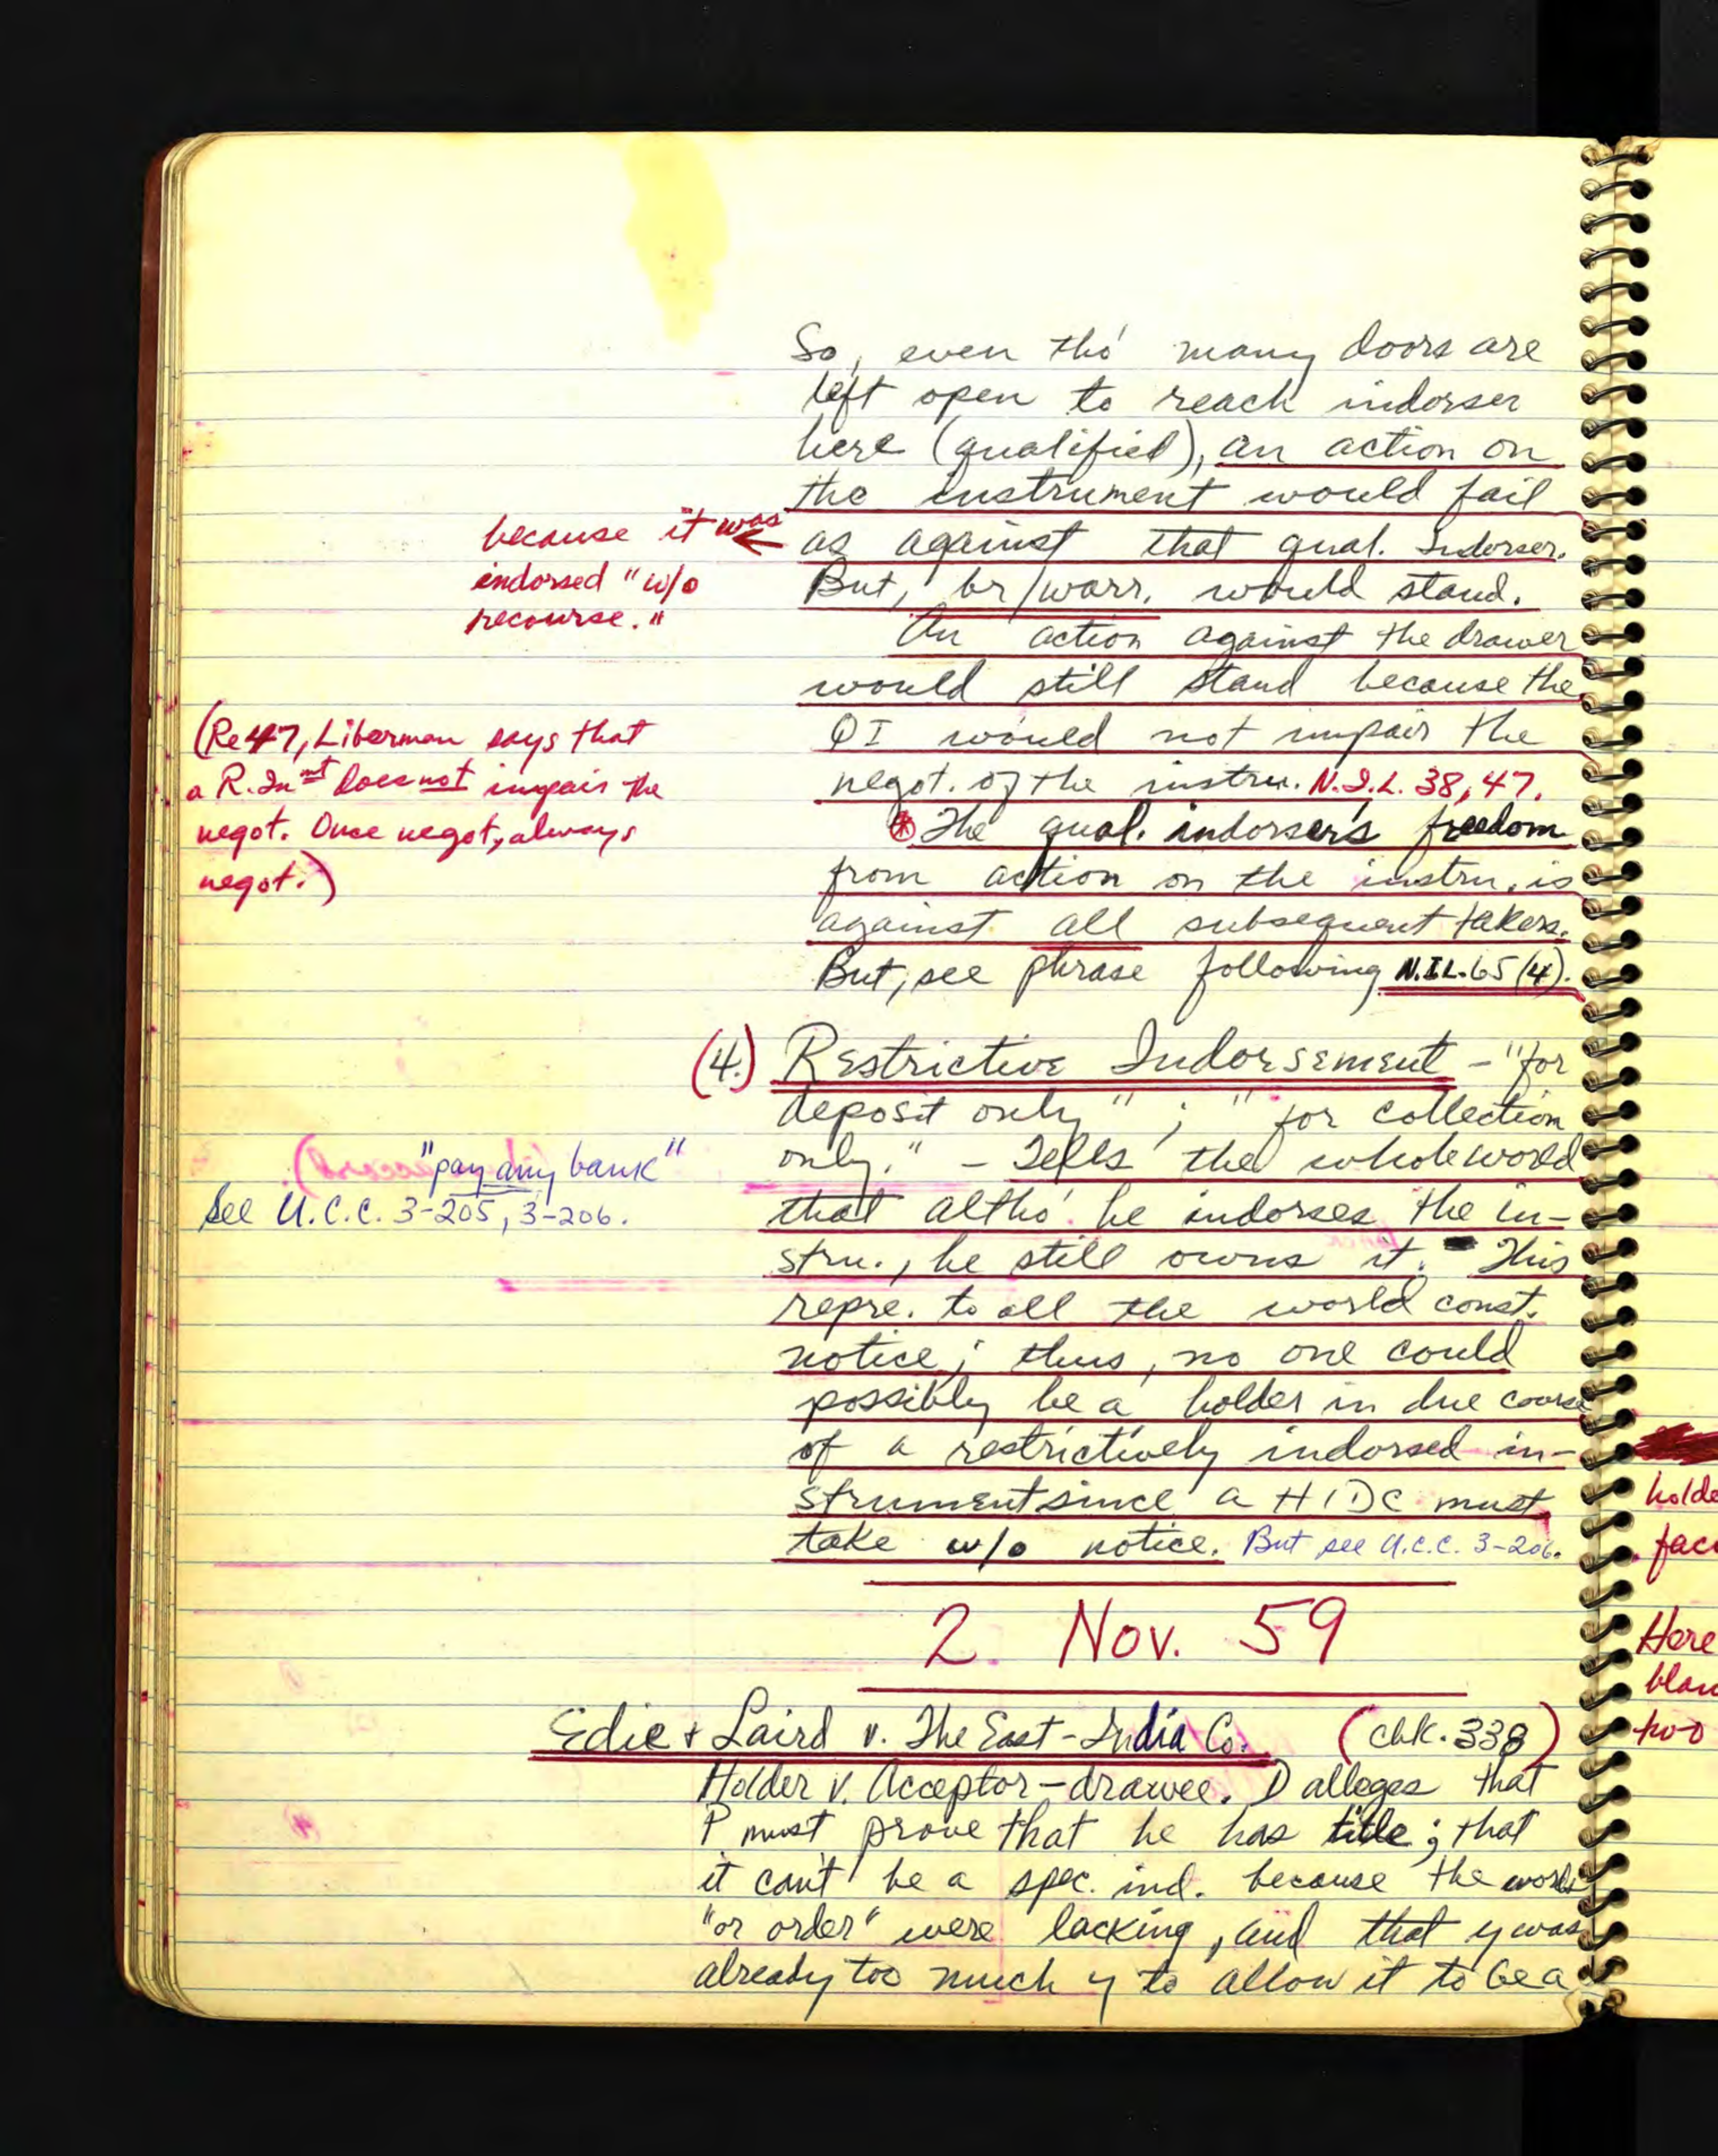 So, even tho' many doors are
left open to reach indorser
here (qualified), an action on
the instrument would fail
as against that qual. Indorser.
because it was
indorsed "w/o
recourse."
But, br/warr. would stand.
An action against the drawer
would still stand because the
QI would not impair the
negot. of the instru. N.I.L. 38, 47.
(Re 47, Liberman says that
a R. Inmt does not impair the
negot. Once negot, always
negot.)
* The qual. indorser's freedom
from action on the instru. is
against all subsequent takers.
But, see phrase following N.I.L. 65 (4).
(4.) Restrictive Indorsement - "for
deposit only"; "for collection
only." - Tells the whole world
"pay any bank"
See U.C.C. 3-205, 3-206.
that altho' he indorses the in-
stru., he still owns it. This
repre. to all the world const.
notice; thus, no one could
possibly be a holder in due course
of a restrictively indorsed in-
strument since a HIDC must
take w/o notice. But see U.C.C. 3-206.
2 Nov. 59
Edie + Laird v. The East-India Co. (chk. 338)
Holder v. Acceptor-drawee. D alleges that
P must prove that he has title; that
it can't be a spec. ind. because the words
"or order" were lacking, and that y was
already too much y to allow it to be a
holde
fac
Here
blan